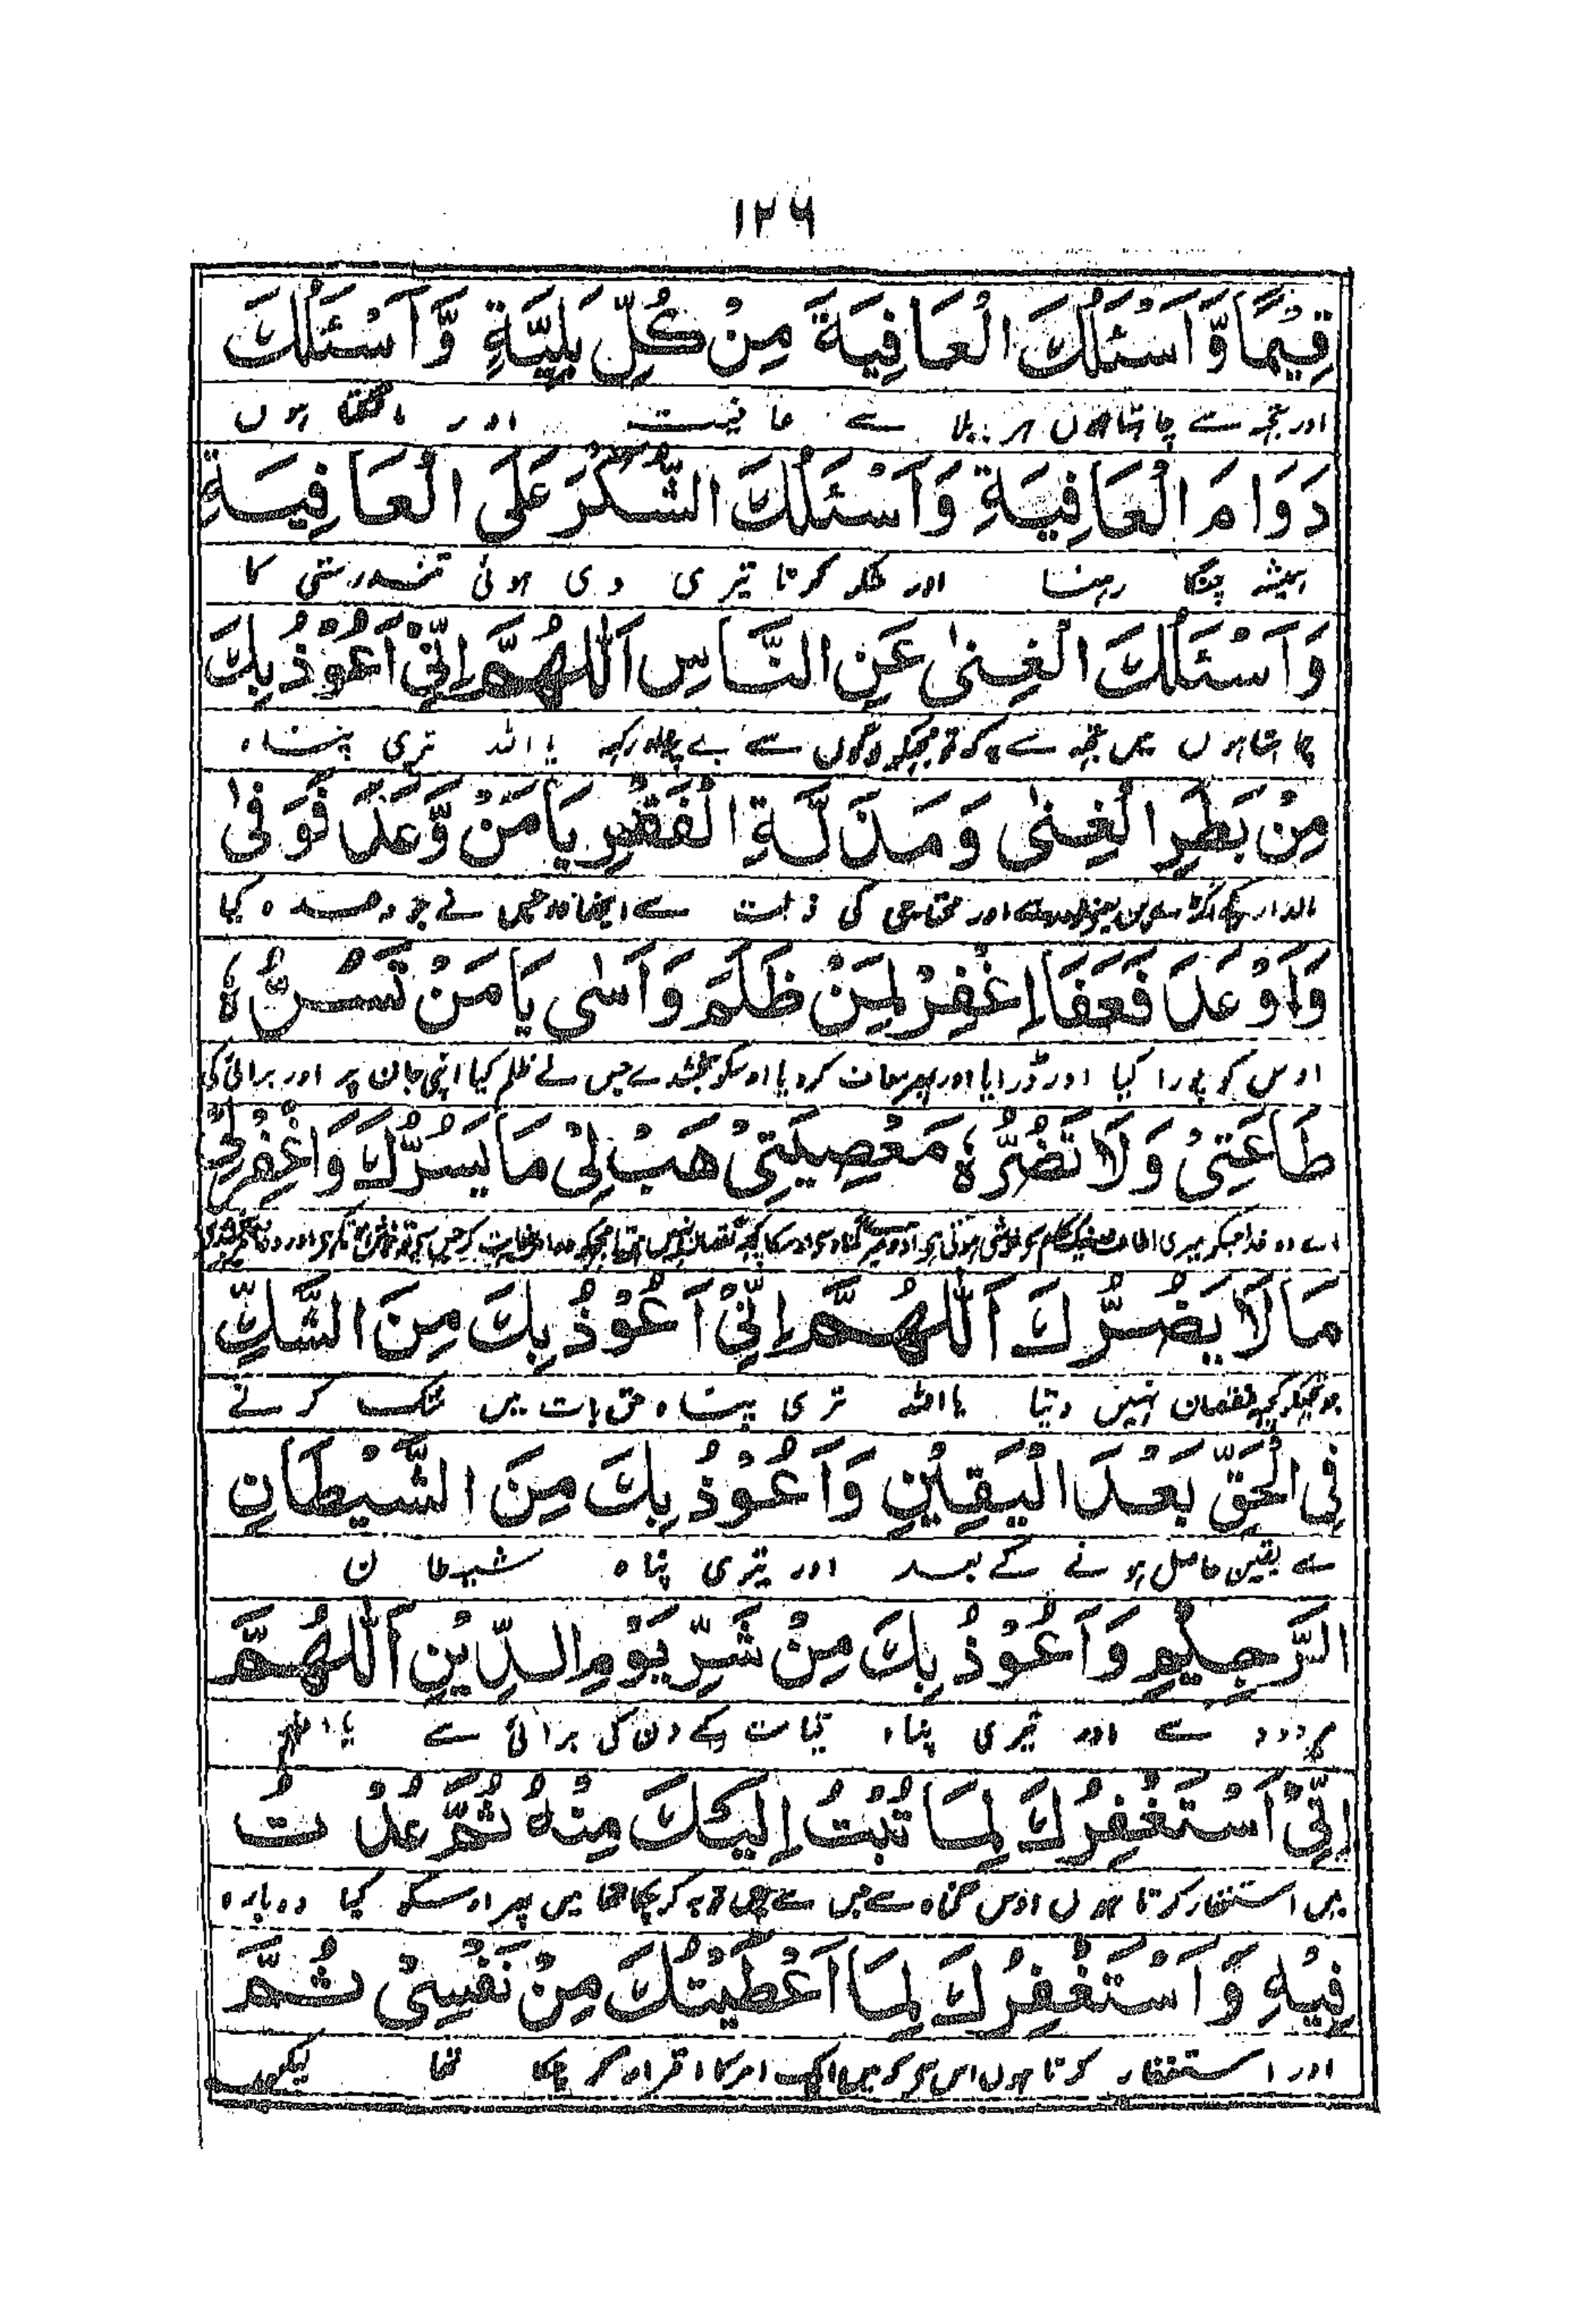 ۱۲۶
قِيْمًا وَّاَسْئَلُكَ الْعَافِيَةَ مِنْ كُلِّ بَلِيَّةٍ وَّاَسْئَلُكَ
اور تجھ سے چاہتا ہوں ہر بلا سے عافیت اور مانگتا ہوں
دَوَامَ الْعَافِيَةِ وَاَسْئَلُكَ الشُّكْرَ عَلَى الْعَافِيَةِ
ہمیشہ چنگا رہنا اور شکر کرنا تیری دی ہوئی تندرستی کا
وَاَسْئَلُكَ الْغِنٰى عَنِ النَّاسِ اَللّٰهُمَّ اِنِّىْ اَعُوْذُ بِكَ
چاہتا ہوں میں تجھ سے کہ تو مجھکو لوگوں سے بے پرواہ رکھہ یا اللہ تری پناہ
مِنْ بَطَرِ الْغِنٰى وَمَذَلَّةِ الْفَقْرِ يَا مَنْ وَّعَدَ فَوَفٰى
اور محتاجی کی ذلت سے جس نے جو وعدہ کیا
وَاَوْعَدَ فَعَفَا اِغْفِرْ لِمَنْ ظَلَمَ وَاَسٰى يَا مَنْ تَسُرُّهٗ
اوس کو پورا کیا اور ڈرایا اور پھر معاف کردیا اوسکو بخشدے جس نے ظلم کیا اپنی جان پر اور برائی کی
طَاعَتِىْ وَلَا تَضُرُّهٗ مَعْصِيَتِىْ هَبْ لِىْ مَا يَسُرُّكَ وَاغْفِرْ لِىْ
اے وہ خدا جسکو میری
مَا لَا يَضُرُّكَ اَللّٰهُمَّ اِنِّىْ اَعُوْذُ بِكَ مِنَ الشَّكِّ
جو تجھکو کچھ نقصان نہیں دیتا یا اللہ تری پناہ حق بات میں شک کرنے
فِى الْحَقِّ بَعْدَ الْيَقِيْنِ وَاَعُوْذُ بِكَ مِنَ الشَّيْطَانِ
سے یقین حاصل ہونے کے بعد اور تیری پناہ شیطان
الرَّجِيْمِ وَاَعُوْذُ بِكَ مِنْ شَرِّ يَوْمِ الدِّيْنِ اَللّٰهُمَّ
مردود سے اور تیری پناہ قیامت کے دن کی برائی سے یا اللہ
اِنِّىْ اَسْتَغْفِرُكَ لِمَا تُبْتُ اِلَيْكَ مِنْهُ ثُمَّ عُدْتُ
میں استغفار کرتا ہوں اوس گناہ سے جس سے میں توبہ کر چکا تھا میں پھر اوسکو کیا دوبارہ
فِيْهِ وَاَسْتَغْفِرُكَ لِمَا اَعْطَيْتُكَ مِنْ نَفْسِىْ ثُمَّ
اور استغفار کرتا ہوں اس سے کہ میں ایک امر کا اقرار کر چکا تھا لیکن